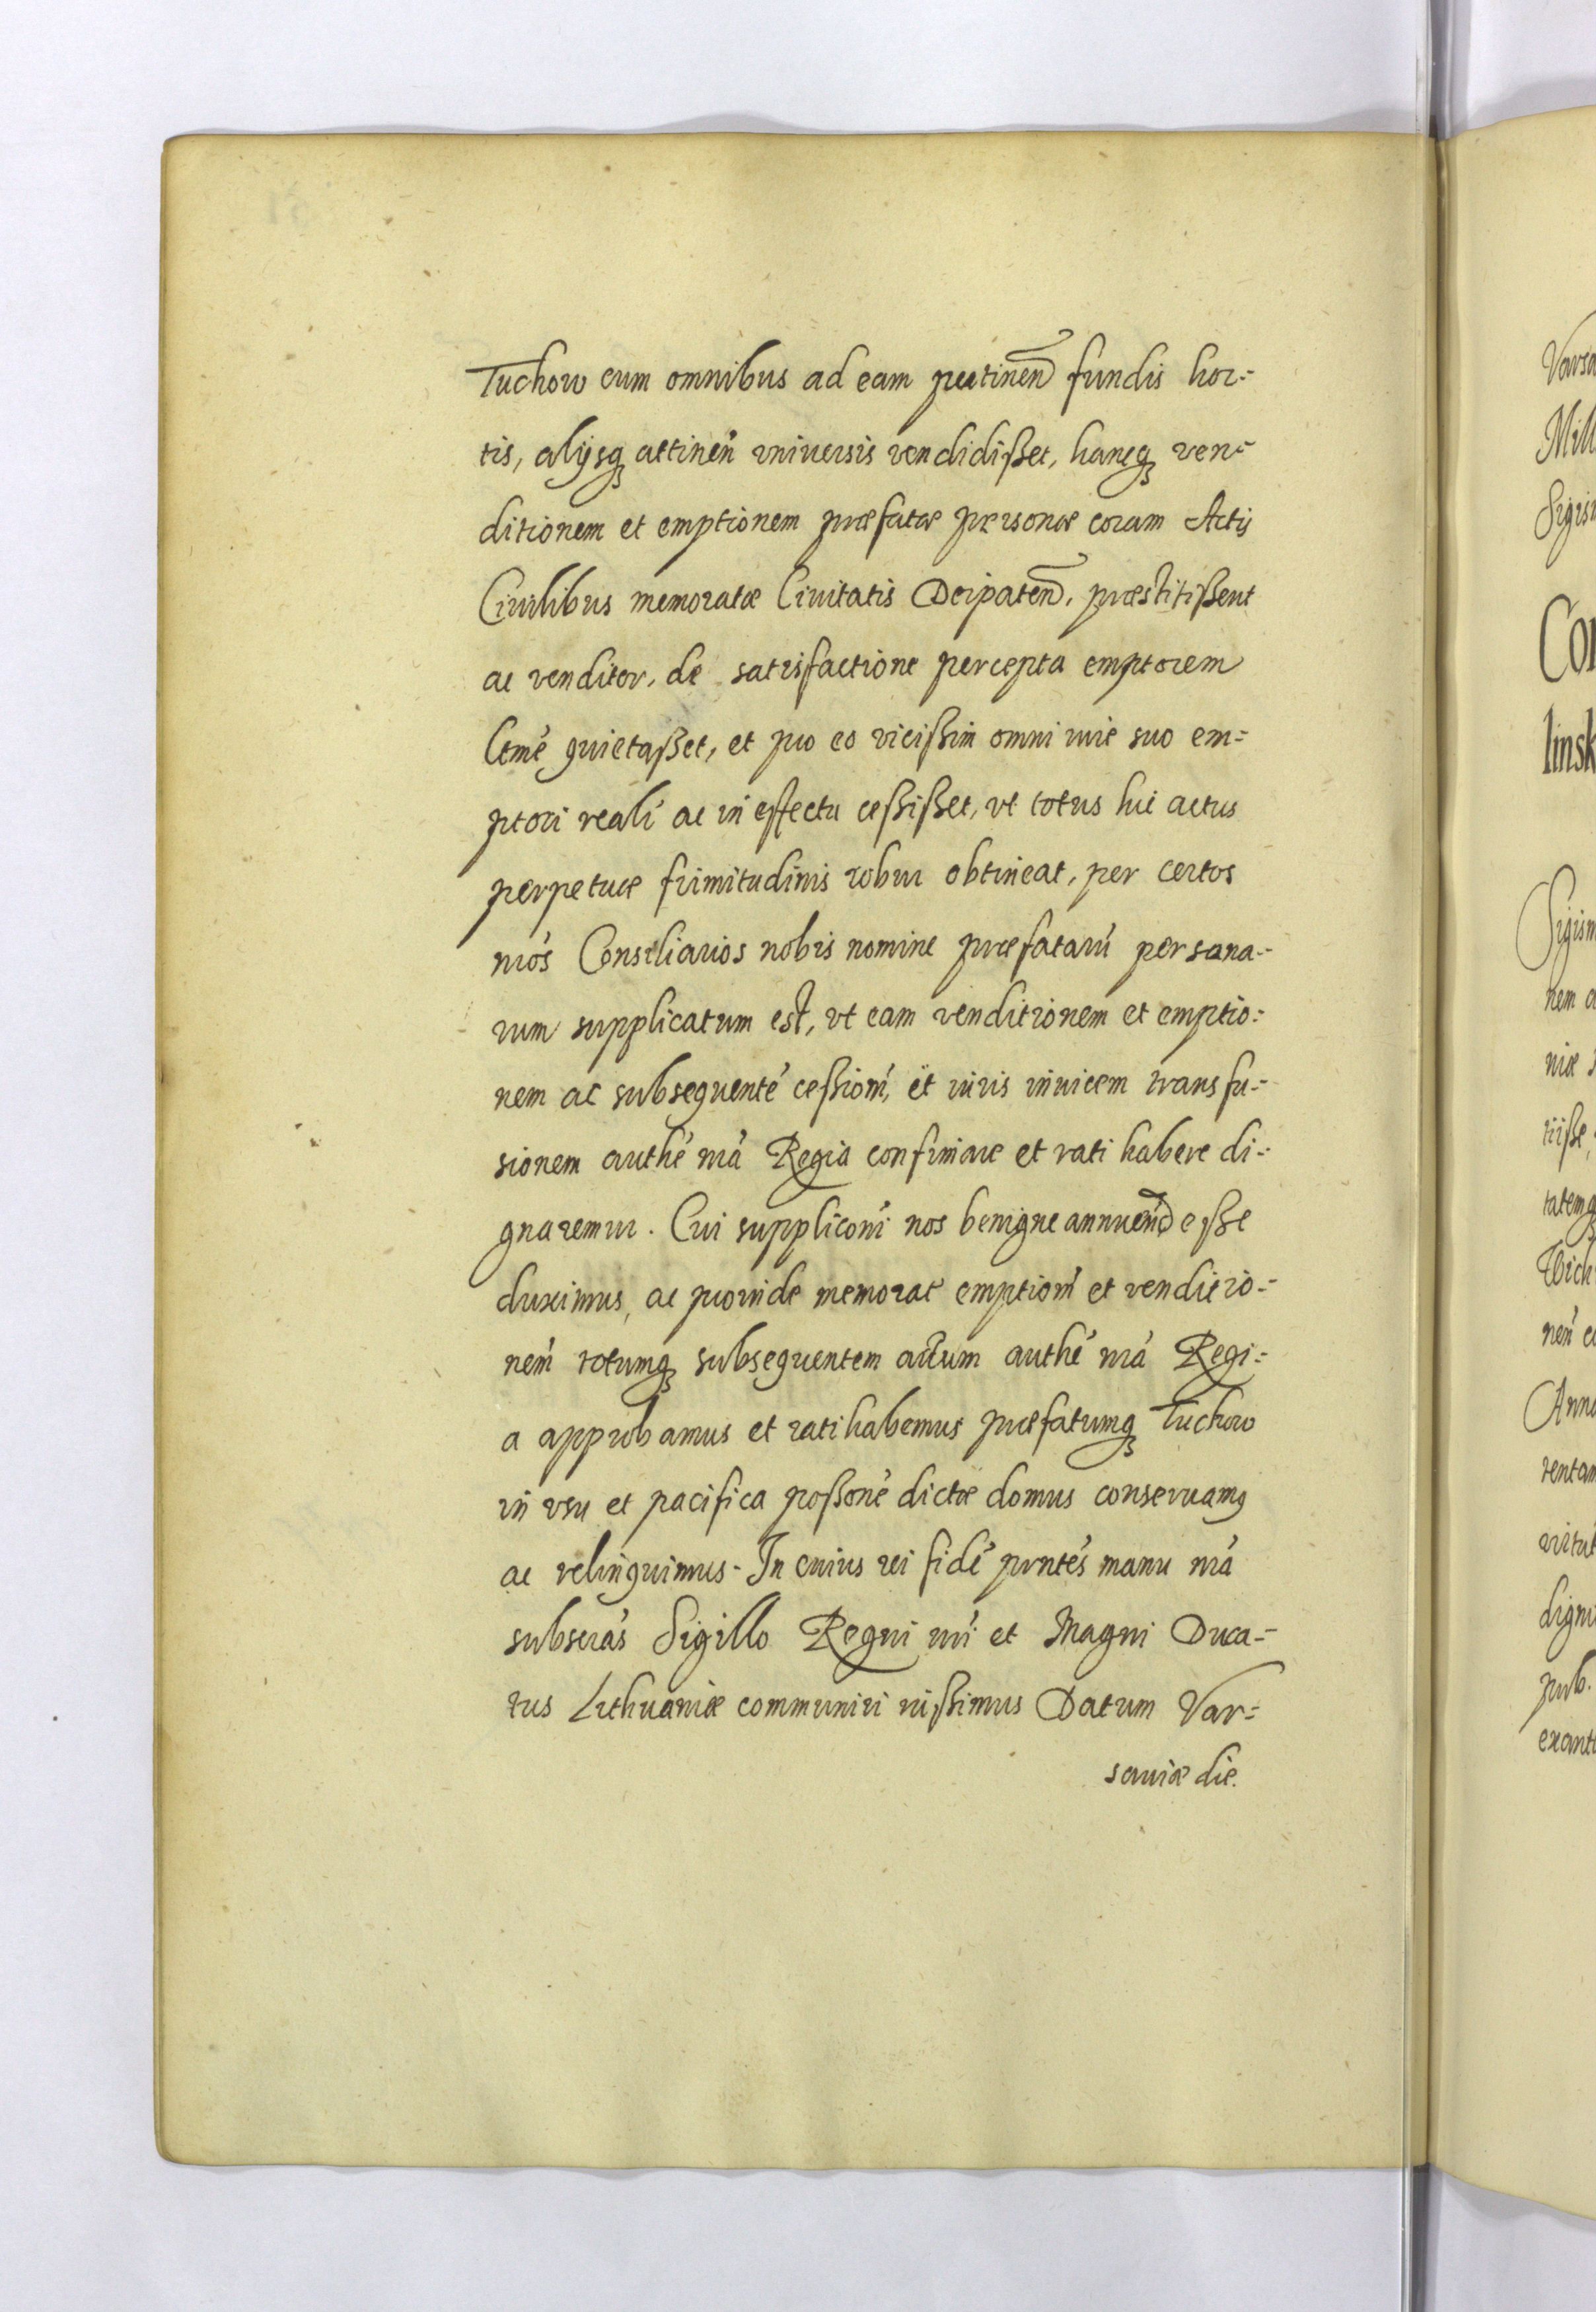 Tuchow cum omnibus ad eam pertinen̄ fundis hor-
tis, alijsq attinen̄ vniuersis vendidißet, hancq ven-
ditionem et emptionem præfatæ personæ coram Actis
Ciuilibus memoratæ Ciuitatis Derpaten̄. præstitißent
ac venditor, de satisfactione percepta emptorem
Ctmé quietaßet, et pro eo vicißim omni iure suo em-
ptori reali ac in effectu ceßißet, vt totus hic actus
perpetuæ firmitudinis robur obtineat, per certos
nros Consiliarios nobis nomine præfatarú persona-
rum supplicatum est, vt eam venditionem et emptio-
nem ac subsequenté ceßioné, et iuris inuicem transfu-
sionem authé nrá Regia confirmare et rati habere di-
gnaremur. Cui suppliconi nos benigne annuend eße
duximus, ac proinde memorat emptioné et venditio-
nem totumq subsequentem actum authé nrá Regi-
a approbamus et ratihabemus præfatumq Tuchow
in vsu et pacifica poßoné dictæ domus conseruamq
ac relinquimus. In cuius rei fidé prntés manu nrá
subscrás Sigillo Regni nri et Magni Duca-
tus Lithuaniæ communiri iußimus Datum Var-
sauiæ die.
Varsa
Mill
Sigis
Con
linsk
Sigism
nem a
niæ
tiiße,
tatemq
Wich
nem
Anno
tentam
virtut
digni
pub.
exant